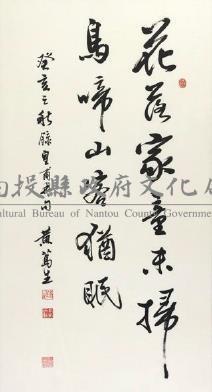 花落家童未掃
鳥啼山客猶眠
癸亥之秋錄皇甫冉句 黃篤生
南投縣政府文化局
Cultural Bureau of Nantou County Government